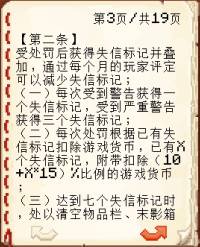 第3页/共19页
【第二条】
受处罚后获得失信标记并叠
加，通过每个月的玩家评定
可以减少失信标记；
（一）每次受到警告获得一
个失信标记，受到严重警告
获得三个失信标记；
（二）每次处罚根据已有失
信标记扣除游戏货币，已有X
个失信标记，附带扣除（10
+X*15）%比例的游戏货
币；
（三）达到七个失信标记时
，处以清空物品栏、末影箱